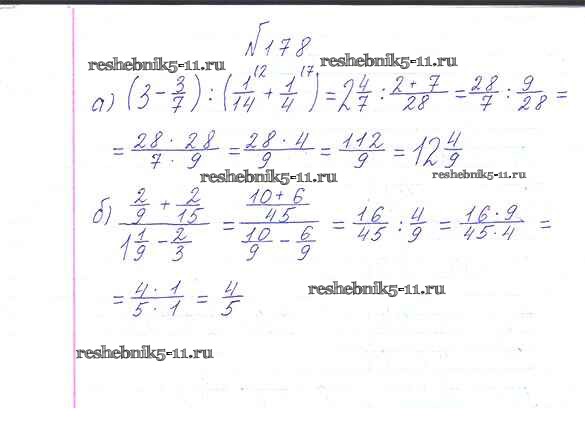 №178
reshebnik5-11.ru
reshebnik5-11.ru
а) (3 - 3/7) : (1/14 ^12 + 1/4 ^17) = 2 4/7 : (2+7)/28 = 28/7 : 9/28 =
= (28 · 28)/(7 · 9) = (28 · 4)/9 = 112/9 = 12 4/9
reshebnik5-11.ru
reshebnik5-11.ru
б) (2/9 + 2/15)/(1 1/9 - 2/3) = ((10+6)/45)/(10/9 - 6/9) = 16/45 : 4/9 = (16 · 9)/(45 · 4) =
= (4 · 1)/(5 · 1) = 4/5
reshebnik5-11.ru
reshebnik5-11.ru